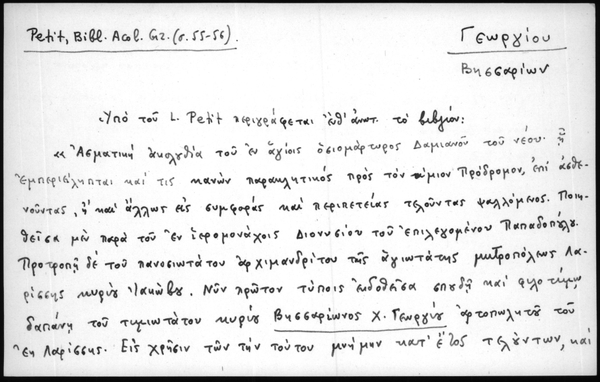 Petit, Bibl. Acol. Gr. (σ. 55-56).
Γεωργίου
Βησσαρίων
Ὑπὸ τοῦ L. Petit περιγράφεται ἐνθ' ἀνωτ. τὸ βιβλίον:
«Ἀσματικὴ ἀκολουθία τοῦ ἐν ἁγίοις ὁσιομάρτυρος Δαμιανοῦ τοῦ νέου· ᾗ
ἐμπεριείληπται καί τις κανὼν παρακλητικὸς πρὸς τὸν τίμιον Πρόδρομον, ἐπὶ ἀσθε
νοῦντας, ἢ καὶ ἄλλως εἰς συμφορὰς καὶ περιπετείας τελοῦντας ψαλλόμενος. Ποιη
θεῖσα μὲν παρὰ τοῦ ἐν ἱερομονάχοις Διονυσίου τοῦ ἐπιλεγομένου Παπαδοπούλου.
Προτροπῇ δὲ τοῦ πανοσιωτάτου ἀρχιμανδρίτου τῆς ἁγιωτάτης μητροπόλεως Λα
ρίσσης κυρίου Ἰακώβου. Νῦν πρῶτον τύποις ἐκδοθεῖσα σπουδῇ καὶ φιλοτίμῳ
δαπάνῃ τοῦ τιμιωτάτου κυρίου Βησσαρίωνος Χ. Γεωργίου ἀρτοπωλητοῦ τοῦ
ἐκ Λαρίσσης. Εἰς χρῆσιν τῶν τὴν τούτου μνήμην κατ' ἔτος τελούντων, καὶ